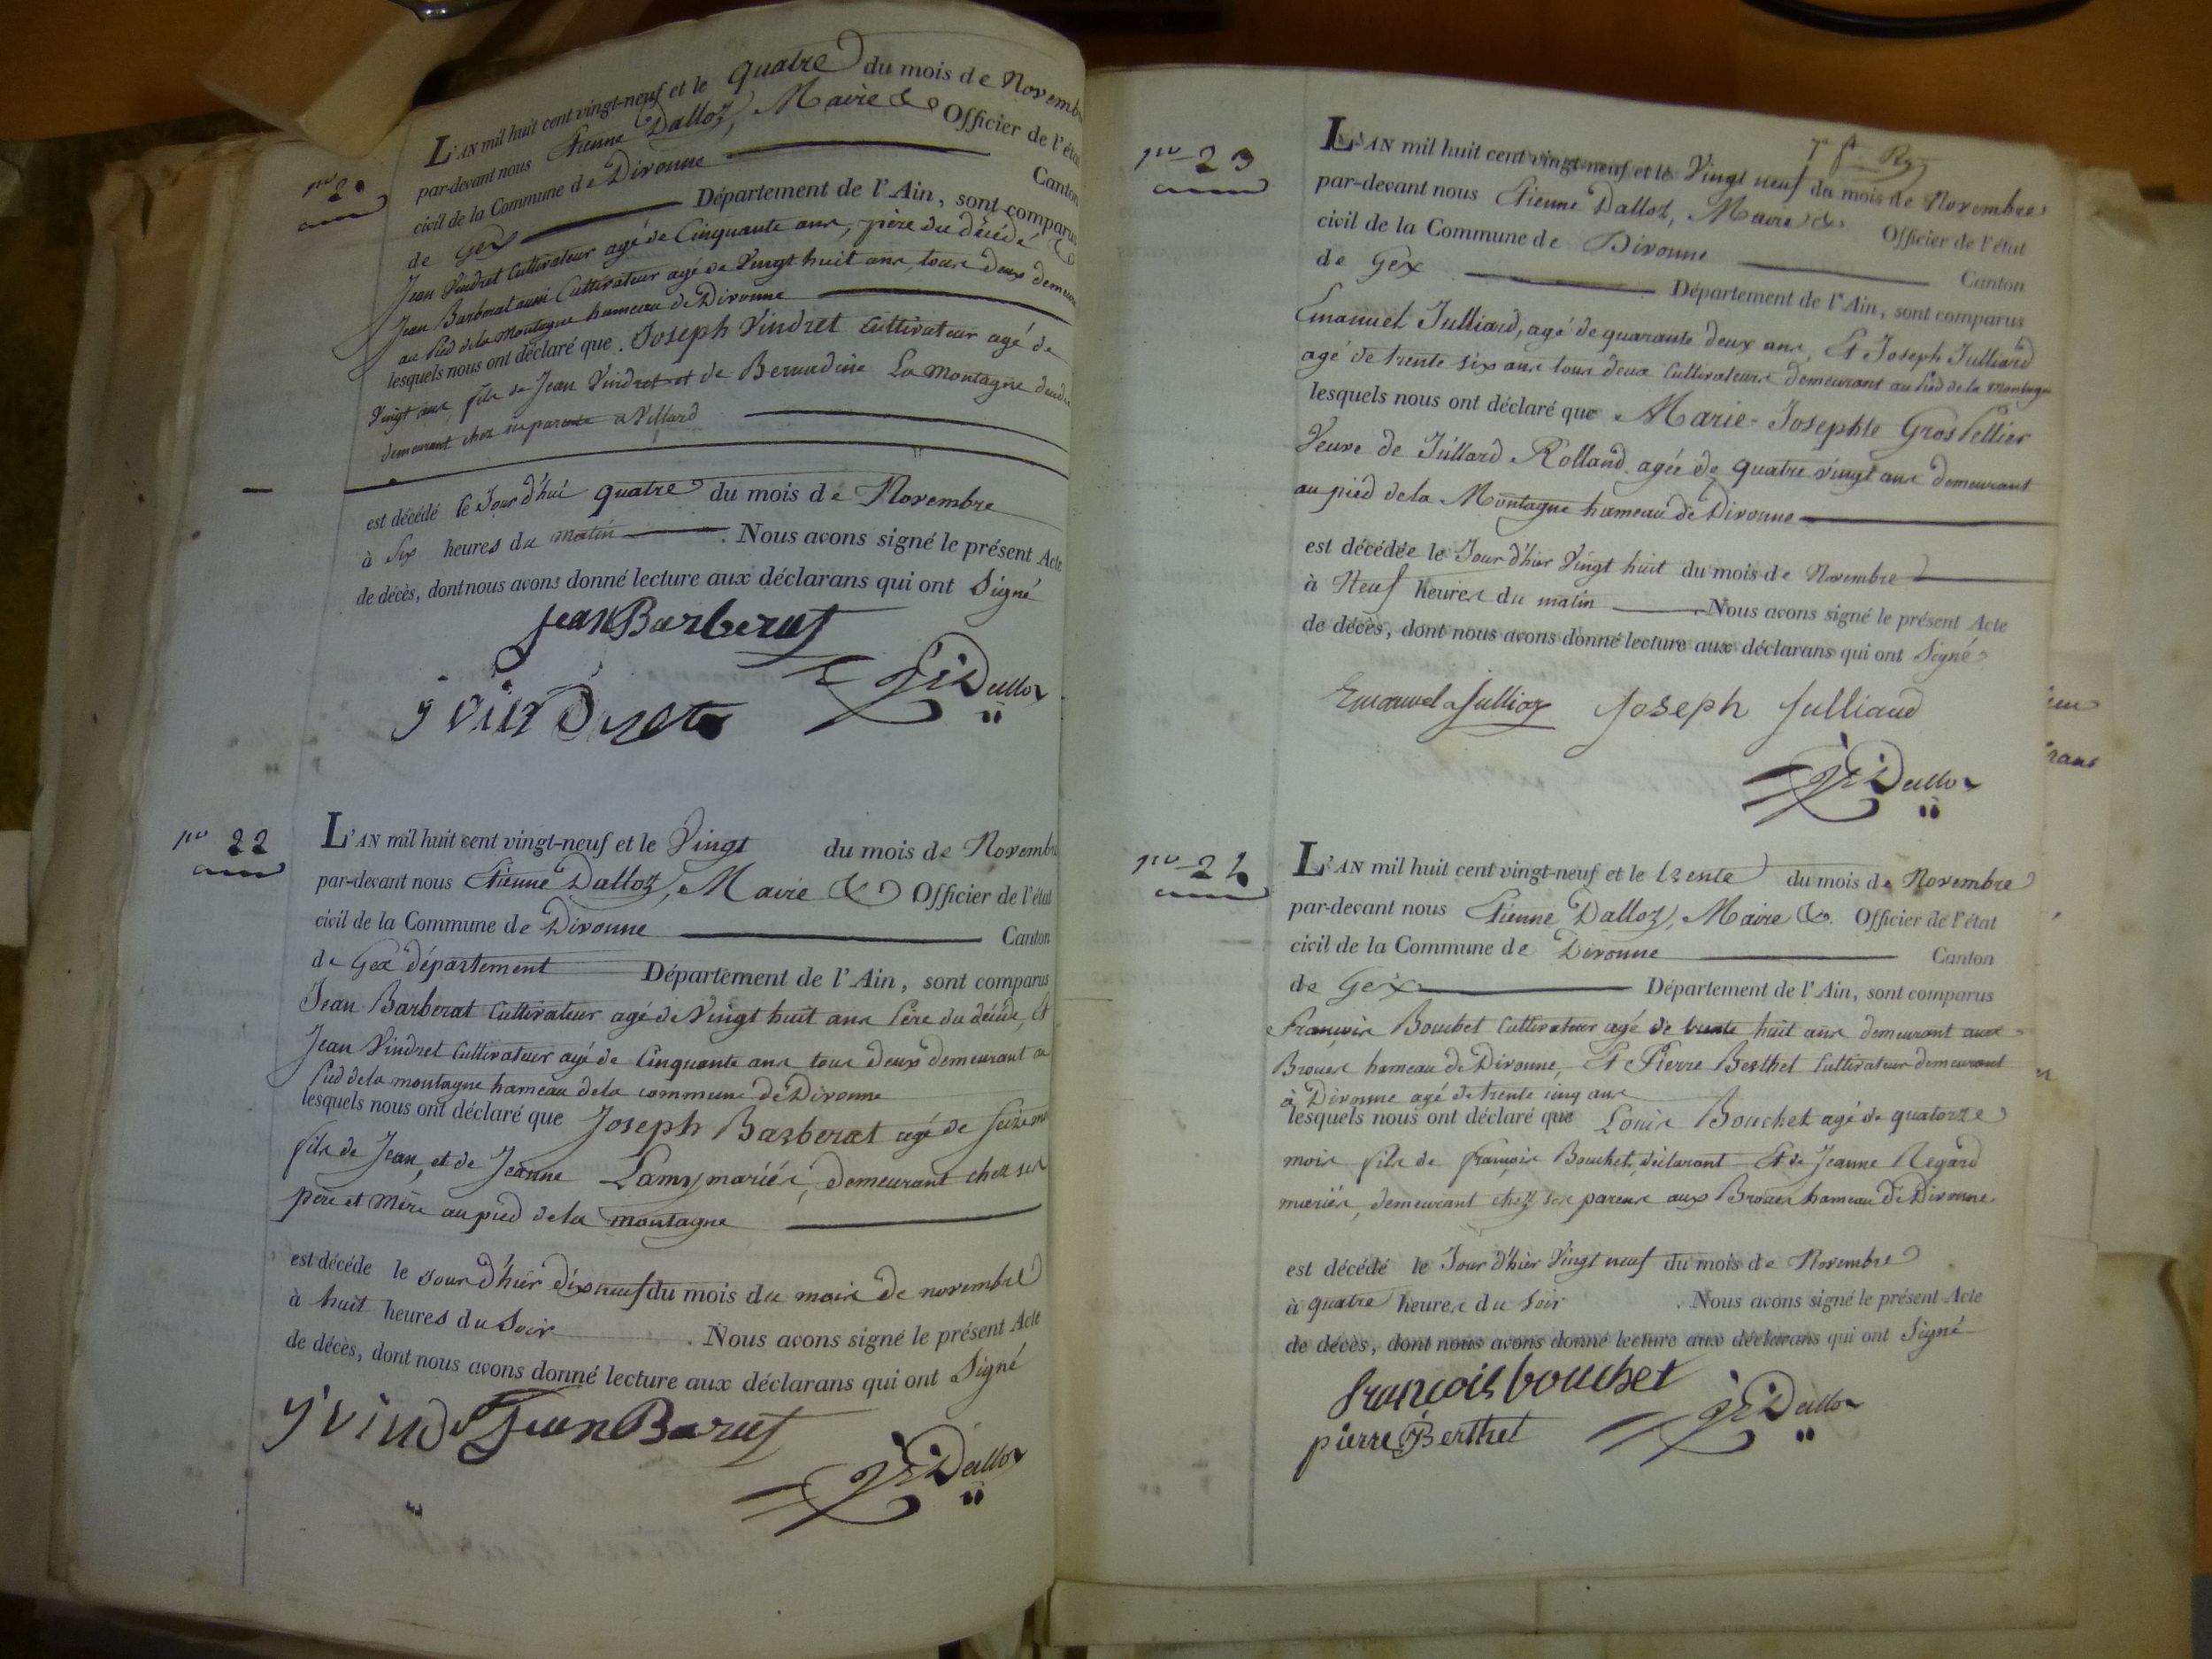 L'AN mil huit cent vingt-neuf et le quatre du mois de Novemb
par-devant nous Etienne Dalloz, Maire & Officier de l'éta
civil de la Commune de Divonne Canton
de Gex Département de l'Ain, sont comparus
Jean Vindret Cultivateur agé de Cinquante ans, père du décédé &
Jean Barberat aussi Cultivateur agé de Vingt huit ans, tous deux demeur
au Pied de la Montagne hameau de Divonne
lesquels nous ont déclaré que Joseph Vindret Cultivateur agé de
Vingt ans fils de Jean Vindret et de Bernardine La Montagne
demeurant chez ses parents a Villard
est décédé le Jour d'hui quatre du mois de Novembre
à Six heures du matin . Nous avons signé le présent Acte
de décès, dont nous avons donné lecture aux déclarans qui ont Signé
jean Barberat
Dalloz
nº 22
L'AN mil huit cent vingt-neuf et le Vingt du mois de Novemb
par-devant nous Etienne Dalloz, Maire & Officier de l'état
civil de la Commune de Divonne Canton
de Gex département Département de l'Ain, sont comparus
Jean Barberat Cultivateur agé de Vingt huit ans Père du décédé, et
Jean Vindret Cultivateur agé de Cinquante ans tous deux demeurant au
Pied de la montagne hameau de la commune de Divonne
lesquels nous ont déclaré que Joseph Barberat agé de Seize
fils de Jean, et de Jeanne Lamy mariés, demeurant chez ses
père et Mère au pied de la montagne
est décédé le Jour d'hier dix neuf du mois du mois de novembre
à huit heures du Soir . Nous avons signé le présent Acte
de décès, dont nous avons donné lecture aux déclarans qui ont Signé
j vind Jean Barat
Dalloz
nº 23
L'AN mil huit cent vingt-neuf et le Vingt neuf du mois de Novembre
par-devant nous Etienne Dalloz, Maire & Officier de l'état
civil de la Commune de Divonne Canton
de Gex Département de l'Ain, sont comparus
Emanuel Julliard, agé de quarante deux ans, Et Joseph Julliard
agé de trente six ans tous deux Cultivateurs demeurant au Pied de la Montagne
lesquels nous ont déclaré que Marie-Josephte GrosPellier
Veuve de Julliard Rolland agée de quatre vingt ans demeurant
au pied de la Montagne hameau de Divonne
est décédée le Jour d'hier Vingt huit du mois de Novembre
à Neuf heures du matin . Nous avons signé le présent Acte
de décès, dont nous avons donné lecture aux déclarans qui ont Signé
Emanuel Julliar Joseph Julliaud
Dalloz
nº 24
L'AN mil huit cent vingt-neuf et le trente du mois de Novembre
par-devant nous Etienne Dalloz, Maire &. Officier de l'état
civil de la Commune de Divonne Canton
de Gex Département de l'Ain, sont comparus
François Bouchet Cultivateur agé de trente huit ans demeurant aux
Broues hameau de Divonne, Et Pierre Berthet Cultivateur demeurant
à Divonne agé de trente cinq ans
lesquels nous ont déclaré que Louis Bouchet agé de quatorze
mois fils de François Bouchet, déclarant Et de Jeanne Regard
mariés, demeurant chez ses parens aux Broues hameau de Divonne
est décédé le Jour d'hier Vingt neuf du mois de Novembre
à quatre heures du Soir . Nous avons signé le présent Acte
de décès, dont nous avons donné lecture aux déclarans qui ont Signé
françois bouchet
pierre Berthet
Dalloz